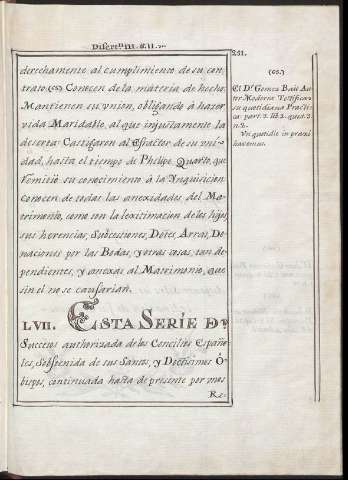 Discrⁿ. III. §. II.
251.
derechamente al cumplimiento de su con-
trato. (65) Conocen de la materia de hecho.
Mantienen su union, obligando à hazer
vida Maridable, al que injustamente la
deserta: Castigaron al Efractor de su uni-
dad, hasta el tiempo de Phelipe Quarto, que
remitiò su conocimiento à la Ynquisicion
Conocen de todas las anexidades del Ma-
trimonio, como son la legitimacion de los hijos
sus herencias, Subcessiones, Dotes, Arras, Do-
naciones por las Bodas, y otras cosas, tan de-
pendientes, y anexas al Matrimonio, que
sin el no se causarian.
LVII. ESTA SERIE DE
Successos authorizada de los Concilios Españo-
les, Sobstenida de sus Santos, y Doctissimos O-
bispos, continuada hasta de presente por mas
(65.)
El Dʳ. Gomez Baîo Au-
tor Moderno Testifica
su quotidiana Practi-
ca. part. 2. lib. 2. quæst. 3.
n. 2.
Vt quotidie in praxi
habemus.